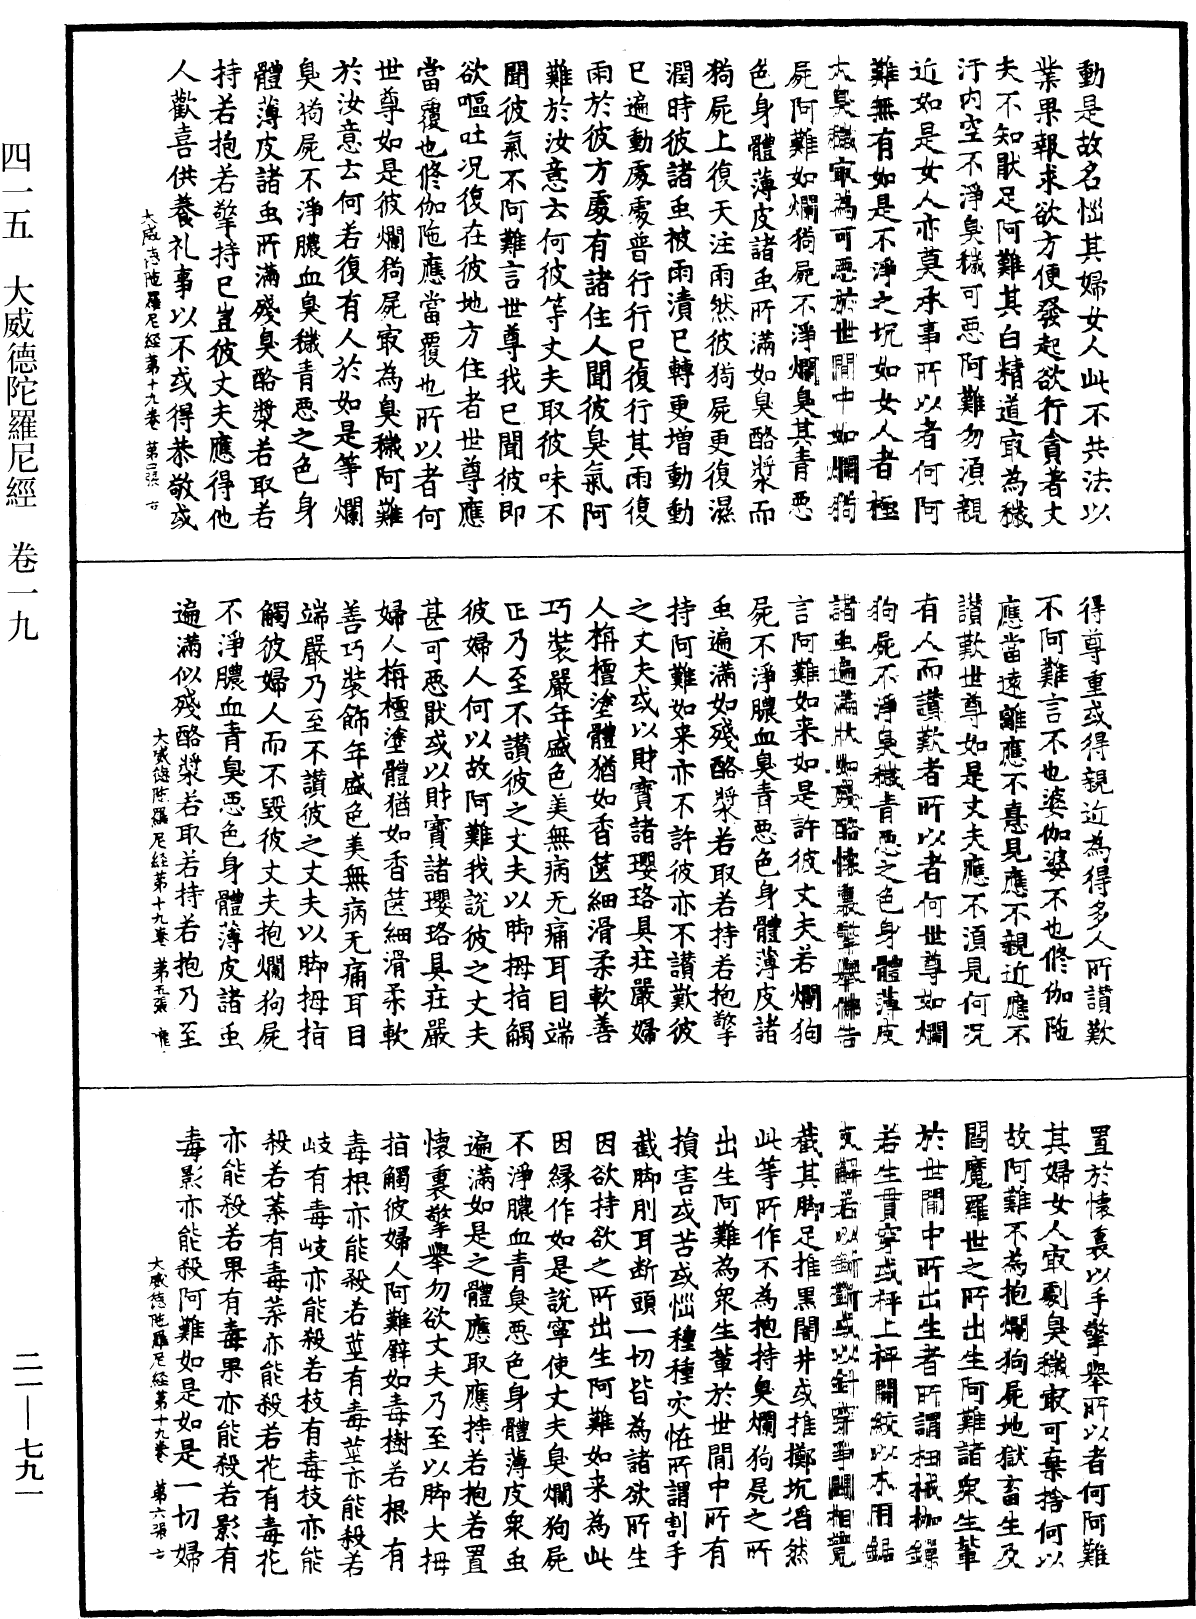 動是故名惱其婦女人此不共法以
業果報求欲方便發起欲行貪者丈
夫不知猒足阿難其白精道㝡為穢
汙内空不淨臭穢可惡阿難勿須親
近如是女人亦莫承事所以者何阿
難無有如是不淨之坑如女人者極
大臭穢㝡為可惡於世間中如爛狗
屍阿難如爛狗屍不淨爛臭其青惡
色身體薄皮諸虫所滿如臭酪漿而
狗屍上復天注雨然彼狗屍更復濕
潤時彼諸虫被雨漬已轉更增動動
已遍動處處普行行已復行其雨復
雨於彼方處有諸住人聞彼臭氣阿
難於汝意云何彼等丈夫取彼味不
聞彼氣不阿難言世尊我已聞彼即
欲嘔吐况復在彼地方住者世尊應
當覆也修伽陁應當覆也所以者何
世尊如是彼爛狗屍㝡為臭穢阿難
於汝意云何若復有人於如是等爛
臭狗屍不淨膿血臭穢青惡之色身
體薄皮諸虫所滿殘臭酪漿若取若
持若抱若擎持已豈彼丈夫應得他
人歡喜供養礼事以不或得恭敬或
大威德陁羅尼經第十九卷 第二張 㐫
得尊重或得親近為得多人所讃歎
不阿難言不也婆伽婆不也修伽陁
應當遠離應不憙見應不親近應不
讃歎世尊如是丈夫應不須見何况
有人而讃歎者所以者何世尊如爛
狗屍不淨臭穢青惡之色身體薄皮
諸虫遍滿狀如殘酪懷裏擎舉佛告
言阿難如来如是許彼丈夫若爛狗
屍不淨膿血臭青惡色身體薄皮諸
虫遍滿如殘酪漿若取若持若抱擎
持阿難如来亦不許彼亦不讃歎彼
之丈夫或以財寶諸瓔珞具莊嚴婦
人栴檀塗體猶如香篋細滑柔軟善
巧裝嚴年盛色美無病无痛耳目端
正乃至不讃彼之丈夫以脚拇指觸
彼婦人何以故阿難我說彼之丈夫
甚可惡猒或以財寶諸瓔珞具莊嚴
婦人栴檀塗體猶如香篋細滑柔軟
善巧裝飾年盛色美無病无痛耳目
端嚴乃至不讃彼之丈夫以脚拇指
觸彼婦人而不毀彼丈夫抱爛狗屍
不淨膿血青臭惡色身體薄皮諸虫
遍滿似殘酪漿若取若持若抱乃至
大威德陁羅尼經第十九卷 第五張
置於懷裏以手擎舉所以者何阿難
其婦女人㝡劇臭穢㝡可棄捨何以
故阿難不為抱爛狗屍地獄畜生及
閻魔羅世之所出生阿難諸衆生輩
於世間中所出生者所謂杻械枷鏁
若生貫穿或秤上秤關絞以木用鋸
支解若以斷斷或以針穿爭鬪相競
截其脚足推黑闇井或推擲坑㵝然
此等所作不為抱持臭爛狗屍之所
出生阿難為衆生輩於世間中所有
損害或苦或惱種種灾恠所謂割手
截脚刖耳断頭一切皆為諸欲所生
因欲持欲之所出生阿難如来為此
因緣作如是說寜使丈夫臭爛狗屍
不淨膿血青臭惡色身體薄皮衆虫
遍滿如是之體應取應持若抱若置
懷裏擎舉勿欲丈夫乃至以脚大拇
指觸彼婦人阿難辟如毒樹若根有
毒根亦能殺若莖有毒莖亦能殺若
岐有毒岐亦能殺若枝有毒枝亦能
殺若葉有毒葉亦能殺若花有毒花
亦能殺若果有毒果亦能殺若影有
毒影亦能殺阿難如是如是一切婦
大威德陁羅尼經第十九卷 第六張
四一五 大威德陀羅尼經 卷一九
二一—七九一